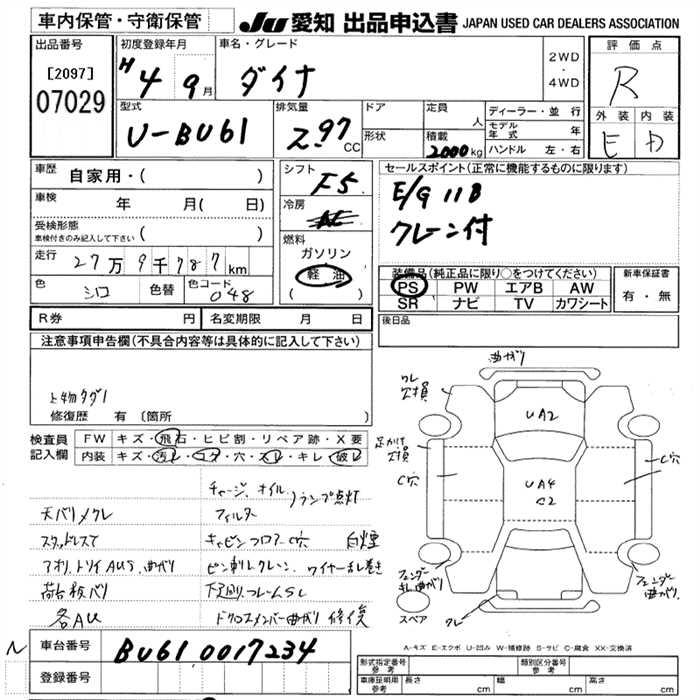 車内保管・守衛保管
JU 愛知 出品申込書 JAPAN USED CAR DEALERS ASSOCIATION
出品番号
[2097]
07029
初度登録年月
H 4 9月
車名・グレード
ダイナ
2WD
・
4WD
評価点
R
外装 内装
E D
型式
U-BU61
排気量
2.97 CC
ドア
形状
定員 人
積載 2000kg
ディーラー・並行
モデル年式 年
ハンドル 左・右
車歴 自家用・( )
車検 年 月( 日)
受検形態
車検付きのみ記入して下さい( )
走行 27万9千787km
色 シロ 色替 色コード 048
シフト
F5
冷房
AC
燃料
ガソリン
軽油
( )
セールスポイント(正常に機能するものに限ります)
E/G 11B
クレーン付
装備品(純正品に限り○をつけてください)
PS PW エアB AW
SR ナビ TV カワシート
新車保証書
有・無
R券 円 名変期限 月 日
後日品
注意事項申告欄(不具合内容等は具体的に記入して下さい)
上物タダノ
修復歴 有 [箇所 ]
検査員
記入欄
FW キズ・飛石・ヒビ割・リペア跡・X要
内装 キズ・汚レ・コゲ・穴・スレ・キレ・破レ
チャージ、オイル
フィルター
ランプ点灯
天バリメクレ
スタッドレスて
キャビンフロアーC穴 白煙
アオリ、トリイAU5、曲がり
ピン刺しクレーン、ワイヤー乱レ巻き
荷台板バリ
下廻リ、フレームSL
各AU
ドクロスメンバー曲がり 修復
曲がり
ワレ
欠損
足かけ
欠損
C穴
C穴
UA2
UA4
C2
フェンダー
乱曲がり
フェンダー
曲がり
ワレ
スペア
A-キズ E-エクボ U-凹み W-補修跡 S-サビ C-腐食 XX-交換済
車台番号 BU61 0017234
登録番号
形式指定番号
参考
類別区分番号
参考
車庫証明用
参考
長さ cm 幅 cm 高さ cm